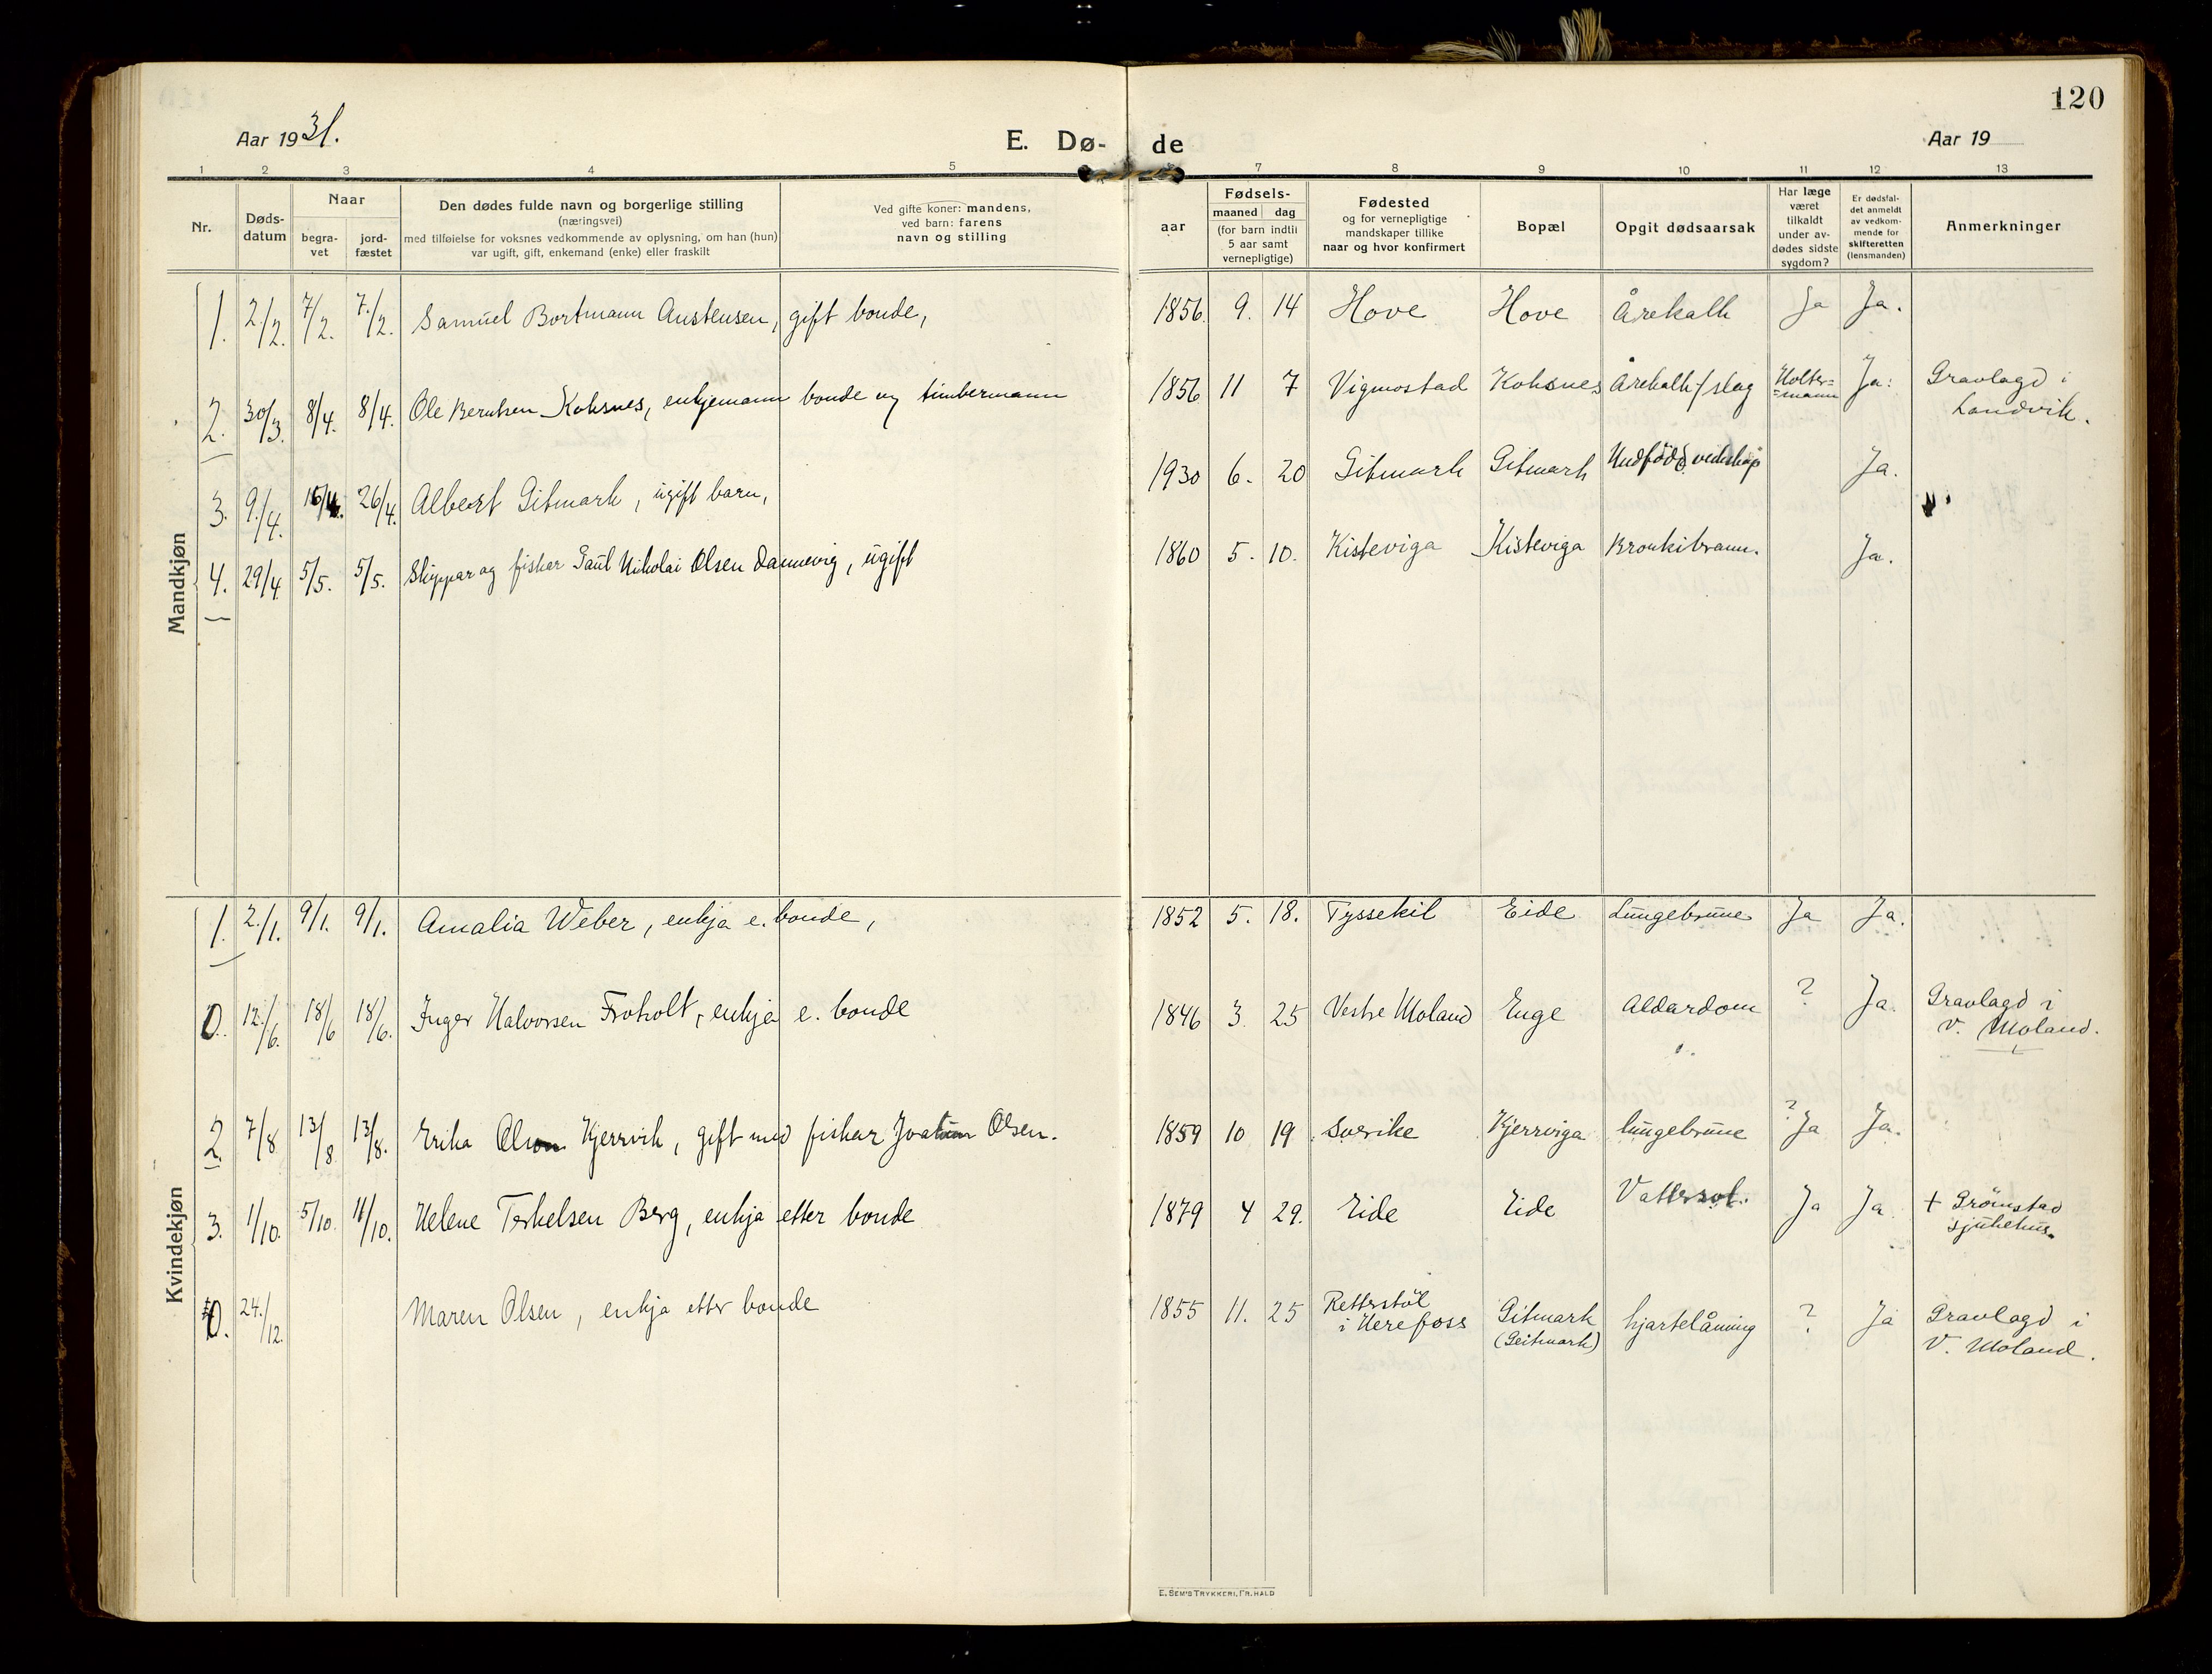 120
Aar 1931.
E. Dø-
de
Aar 19
1 2 3 4 5 7 8 9 10 11 12 13
Nr.
Døds-
datum
Naar
begra-
vet
jord-
fæstet
Den dødes fulde navn og borgerlige stilling
(næringsvei)
med tilføielse for voksnes vedkommende av oplysning, om han (hun)
var ugift, gift, enkemand (enke) eller fraskilt
Ved gifte koner: mandens,
ved barn: farens
navn og stilling
Fødsels-
aar
maaned dag
(for barn indtil
5 aar samt
vernepligtige)
Fødested
og for vernepligtige
mandskaper tillike
naar og hvor konfirmert
Bopæl
Opgit dødsaarsak
Har læge
været
tilkaldt
under av-
dødes sidste
sygdom?
Er dødsfal-
det anmeldt
av vedkom-
mende for
skifteretten
(lensmanden)
Anmerkninger
Mandkjøn
1. 2./2. 7/2. 7./2. Samuel Bortmann Austensen, gift bonde, 1856. 9. 14 Hove Hove Årekalk Ja Ja.
2. 30/3. 8/4. 8/4. Ole Berntsen Koksnes, enkjemann bonde og timbermann 1856 11 7 Vigmostad Koksnes Årekalk/slag Holter=
=mann Ja. Gravlagd i
Landvik.
3. 9./4. 26/4. Albert Gitmark, ugift barn, 1930 6. 20 Gitmark Gitmark Ja.
4. 29/4 5/5. 5/5. Skippar og fiskar Paul Nikolai Olsen Dannevig, ugift 1860 5. 10. Kisteviga Kisteviga Bronkibrann. Ja.
Kvindekjøn
1. 2./1. 9/1. 9/1. Amalia Weber, enkja e. bonde, 1852 5. 18. Tyssekil Eide Lungebrune Ja Ja.
0. 12./6. 18/6 18/6. Inger Halvorsen Froholt, enkja e. bonde 1846 3. 25 Vestre Moland Enge Aldardom ? Ja. Gravlagd i
V. Moland.
2. 7/8 13/8 13/8. Erika Olson Kjerrvik, gift med fiskar Joakim Olsen. 1859 10 19 Sverike Kjerrviga lungebrune ? Ja Ja.
3. 1/10. 5/10. 11/10. Helene Terkelsen Berg, enkja etter bonde 1879 4 29. Eide Eide Vattersot. Ja Ja + Grömstad
sjukehus.
0. 24./12. Maren Olsen, enkja etter bonde 1855 11. 25 Retterstöl
i Herefoss Gitmark
(Geitmark) hjartelåming ? Ja Gravlagd i
V. Moland.
E. SEM'S TRYKKERI, FR.HALD